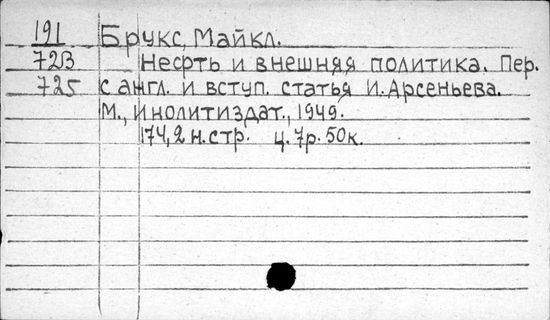 191 Брукс, Майкл.
723 Несрть и внешняя политика. Пер.
725 с англ. и вступ. статья И. Арсеньева.
М., Инолитиздат., 1949.
174, 2 н. стр. ц. 7р. 50к.